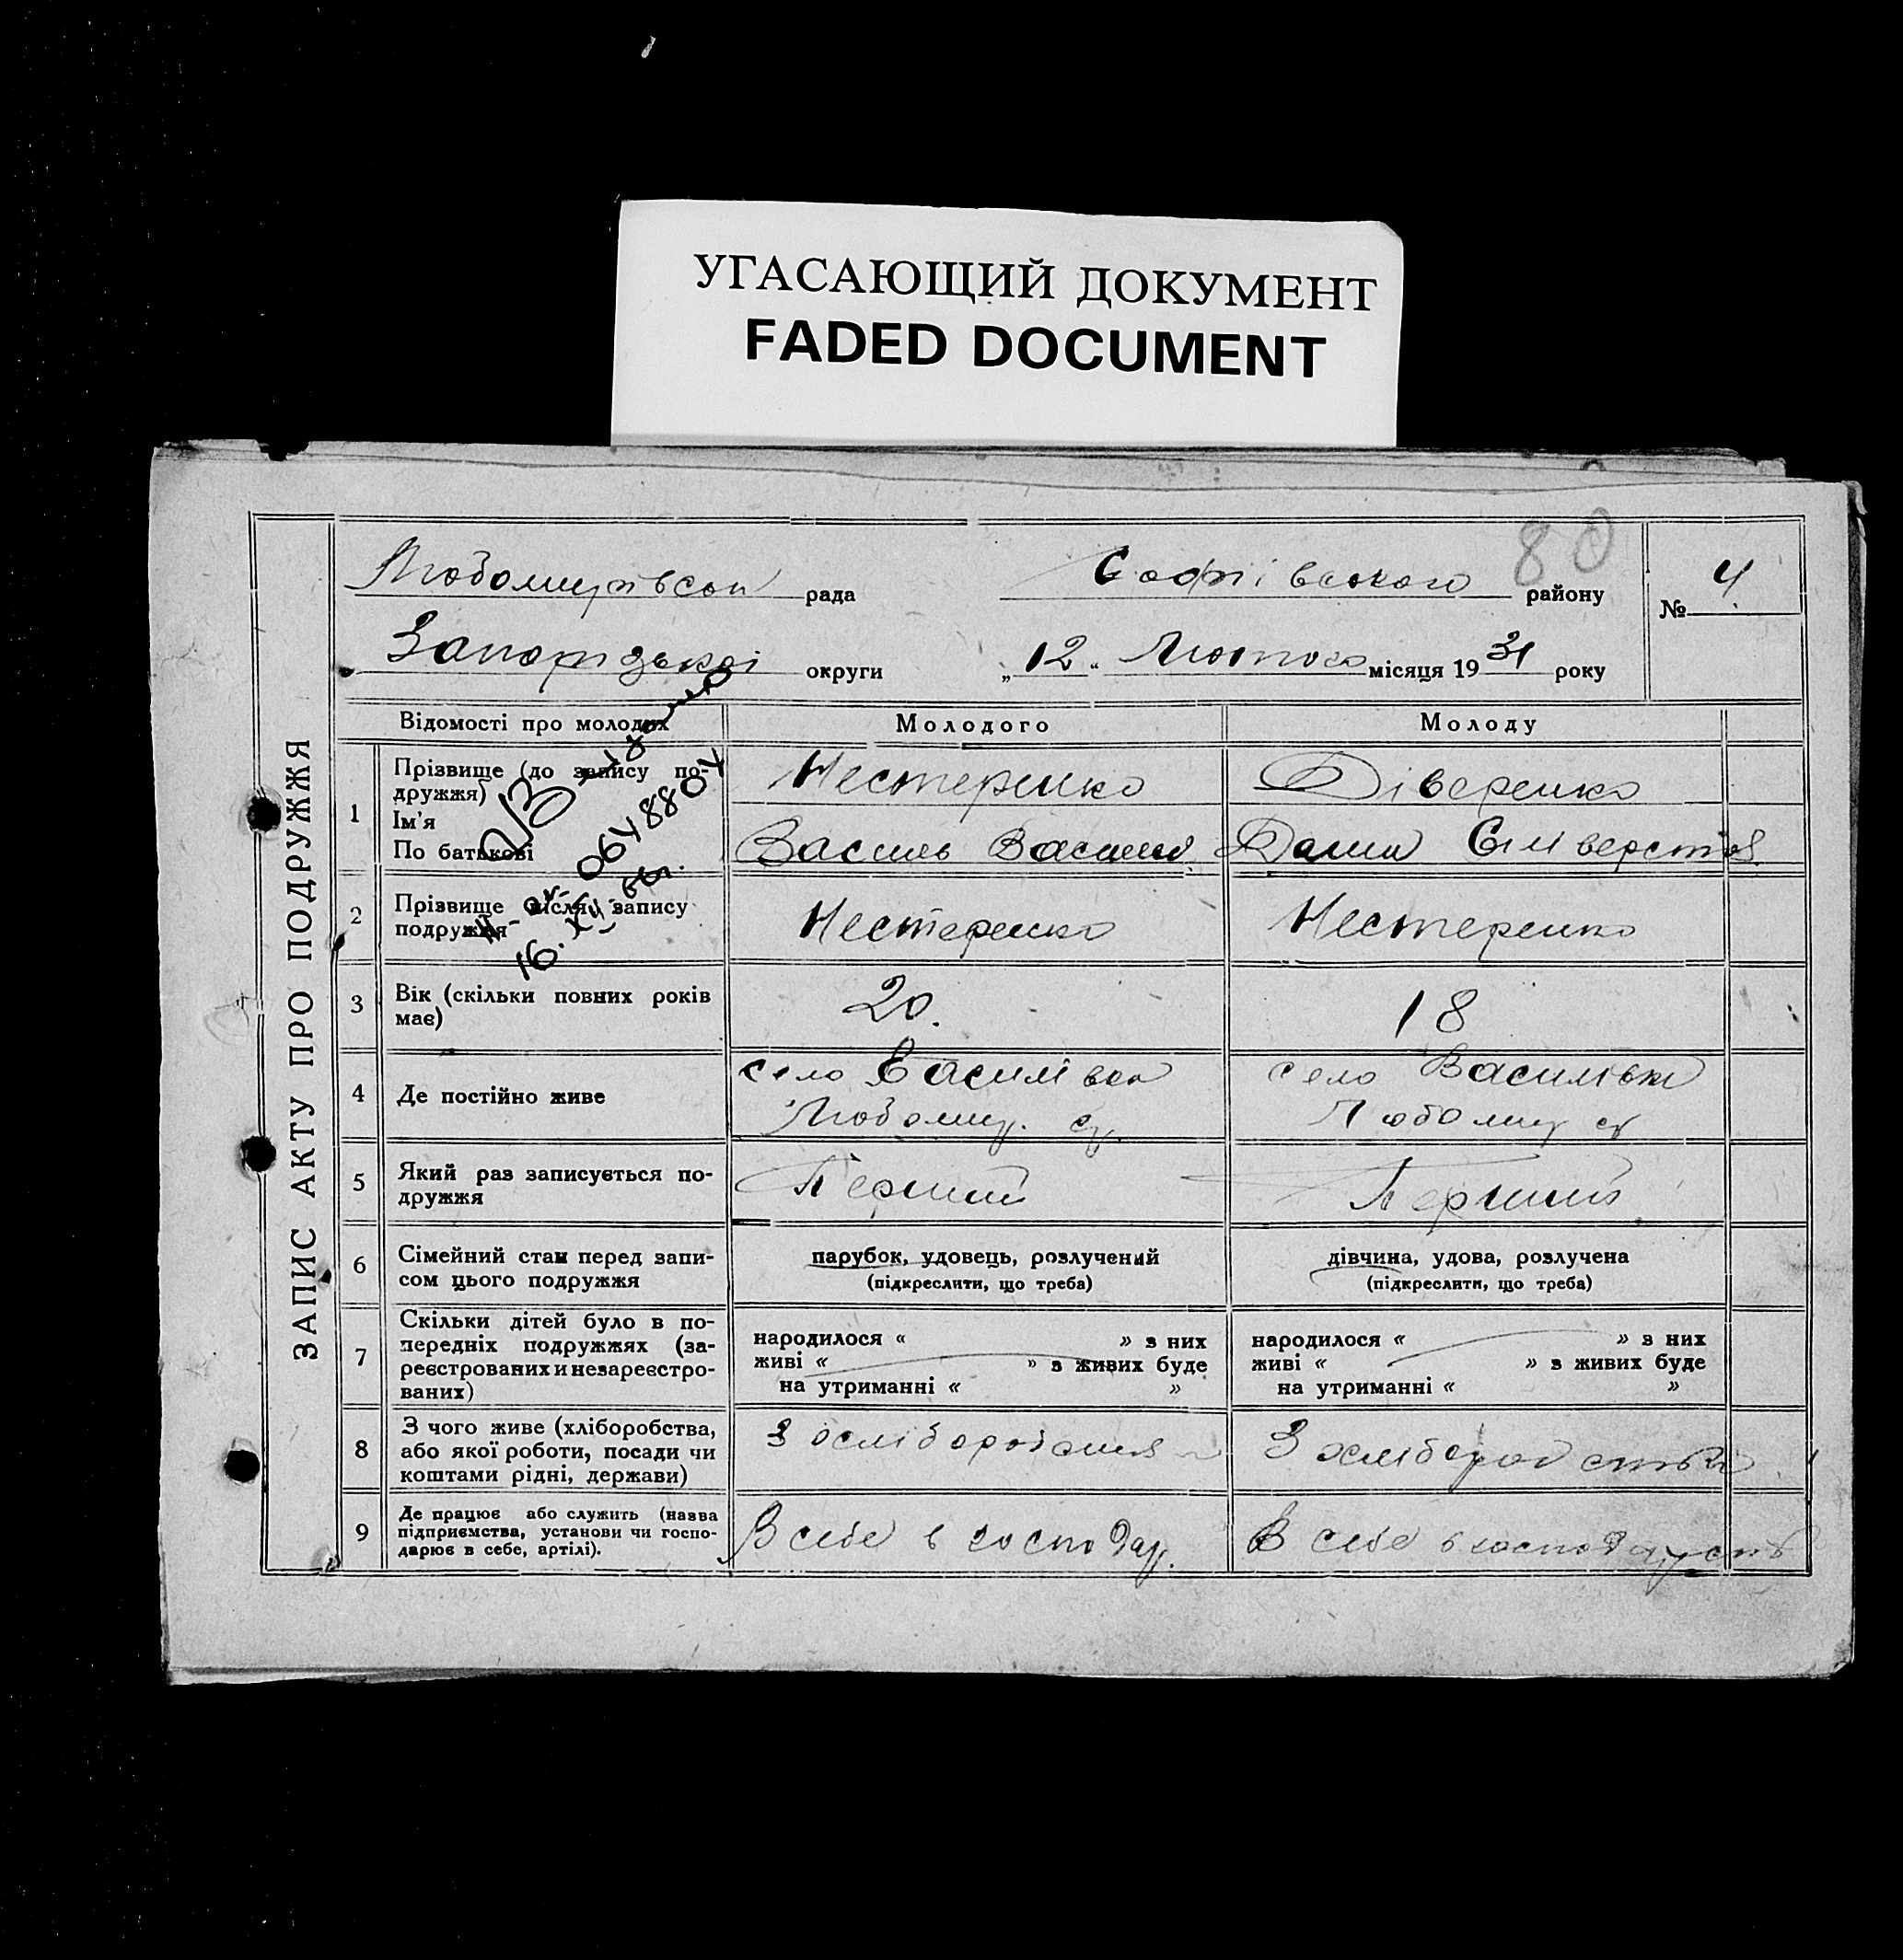 УГАСАЮЩИЙ ДОКУМЕНТ
FADED DOCUMENT
80
ЗАПИС АКТУ ПРО ПОДРУЖЖЯ
Любомирівськ рада Софіївського району № 4
Запорізької округи „12“ Лютого місяця 1931 року
Відомості про молодих Молодого Молоду
1 Прізвище (до запису по-
дружжя) Нестеренко
Ім'я
По батькові Василь Василів. Сиіверстов.
2 Прізвище після запису
подружжя Нестеренко Нестеренко
064880У
16. XII-66г.
3 Вік (скільки повних років
має) 20. 18
4 Де постійно живе село Василівка село Василівка
Любомир. ср. Любомир ср
5 Який раз записується по-
дружжя Перший Перший
6 Сімейний стан перед запи-
сом цього подружжя парубок, удовець, розлучений дівчина, удова, розлучена
(підкреслити, що треба) (підкреслити, що треба)
7 Скільки дітей було в по-
передніх подружжях (за-
реєстрованих и незареєстро-
ваних)
народилося « » з них народилося « » з них
живі « » з живих буде живі « » з живих буде
на утриманні « » на утриманні « »
8 З чого живе (хліборобства,
або якої роботи, посади чи
коштами рідні, держави) З хліборобства
9 Де працює або служить (назва
підприємства, установи чи госпо-
дарює в себе, артілі). В себе в господар. В себе в господарств